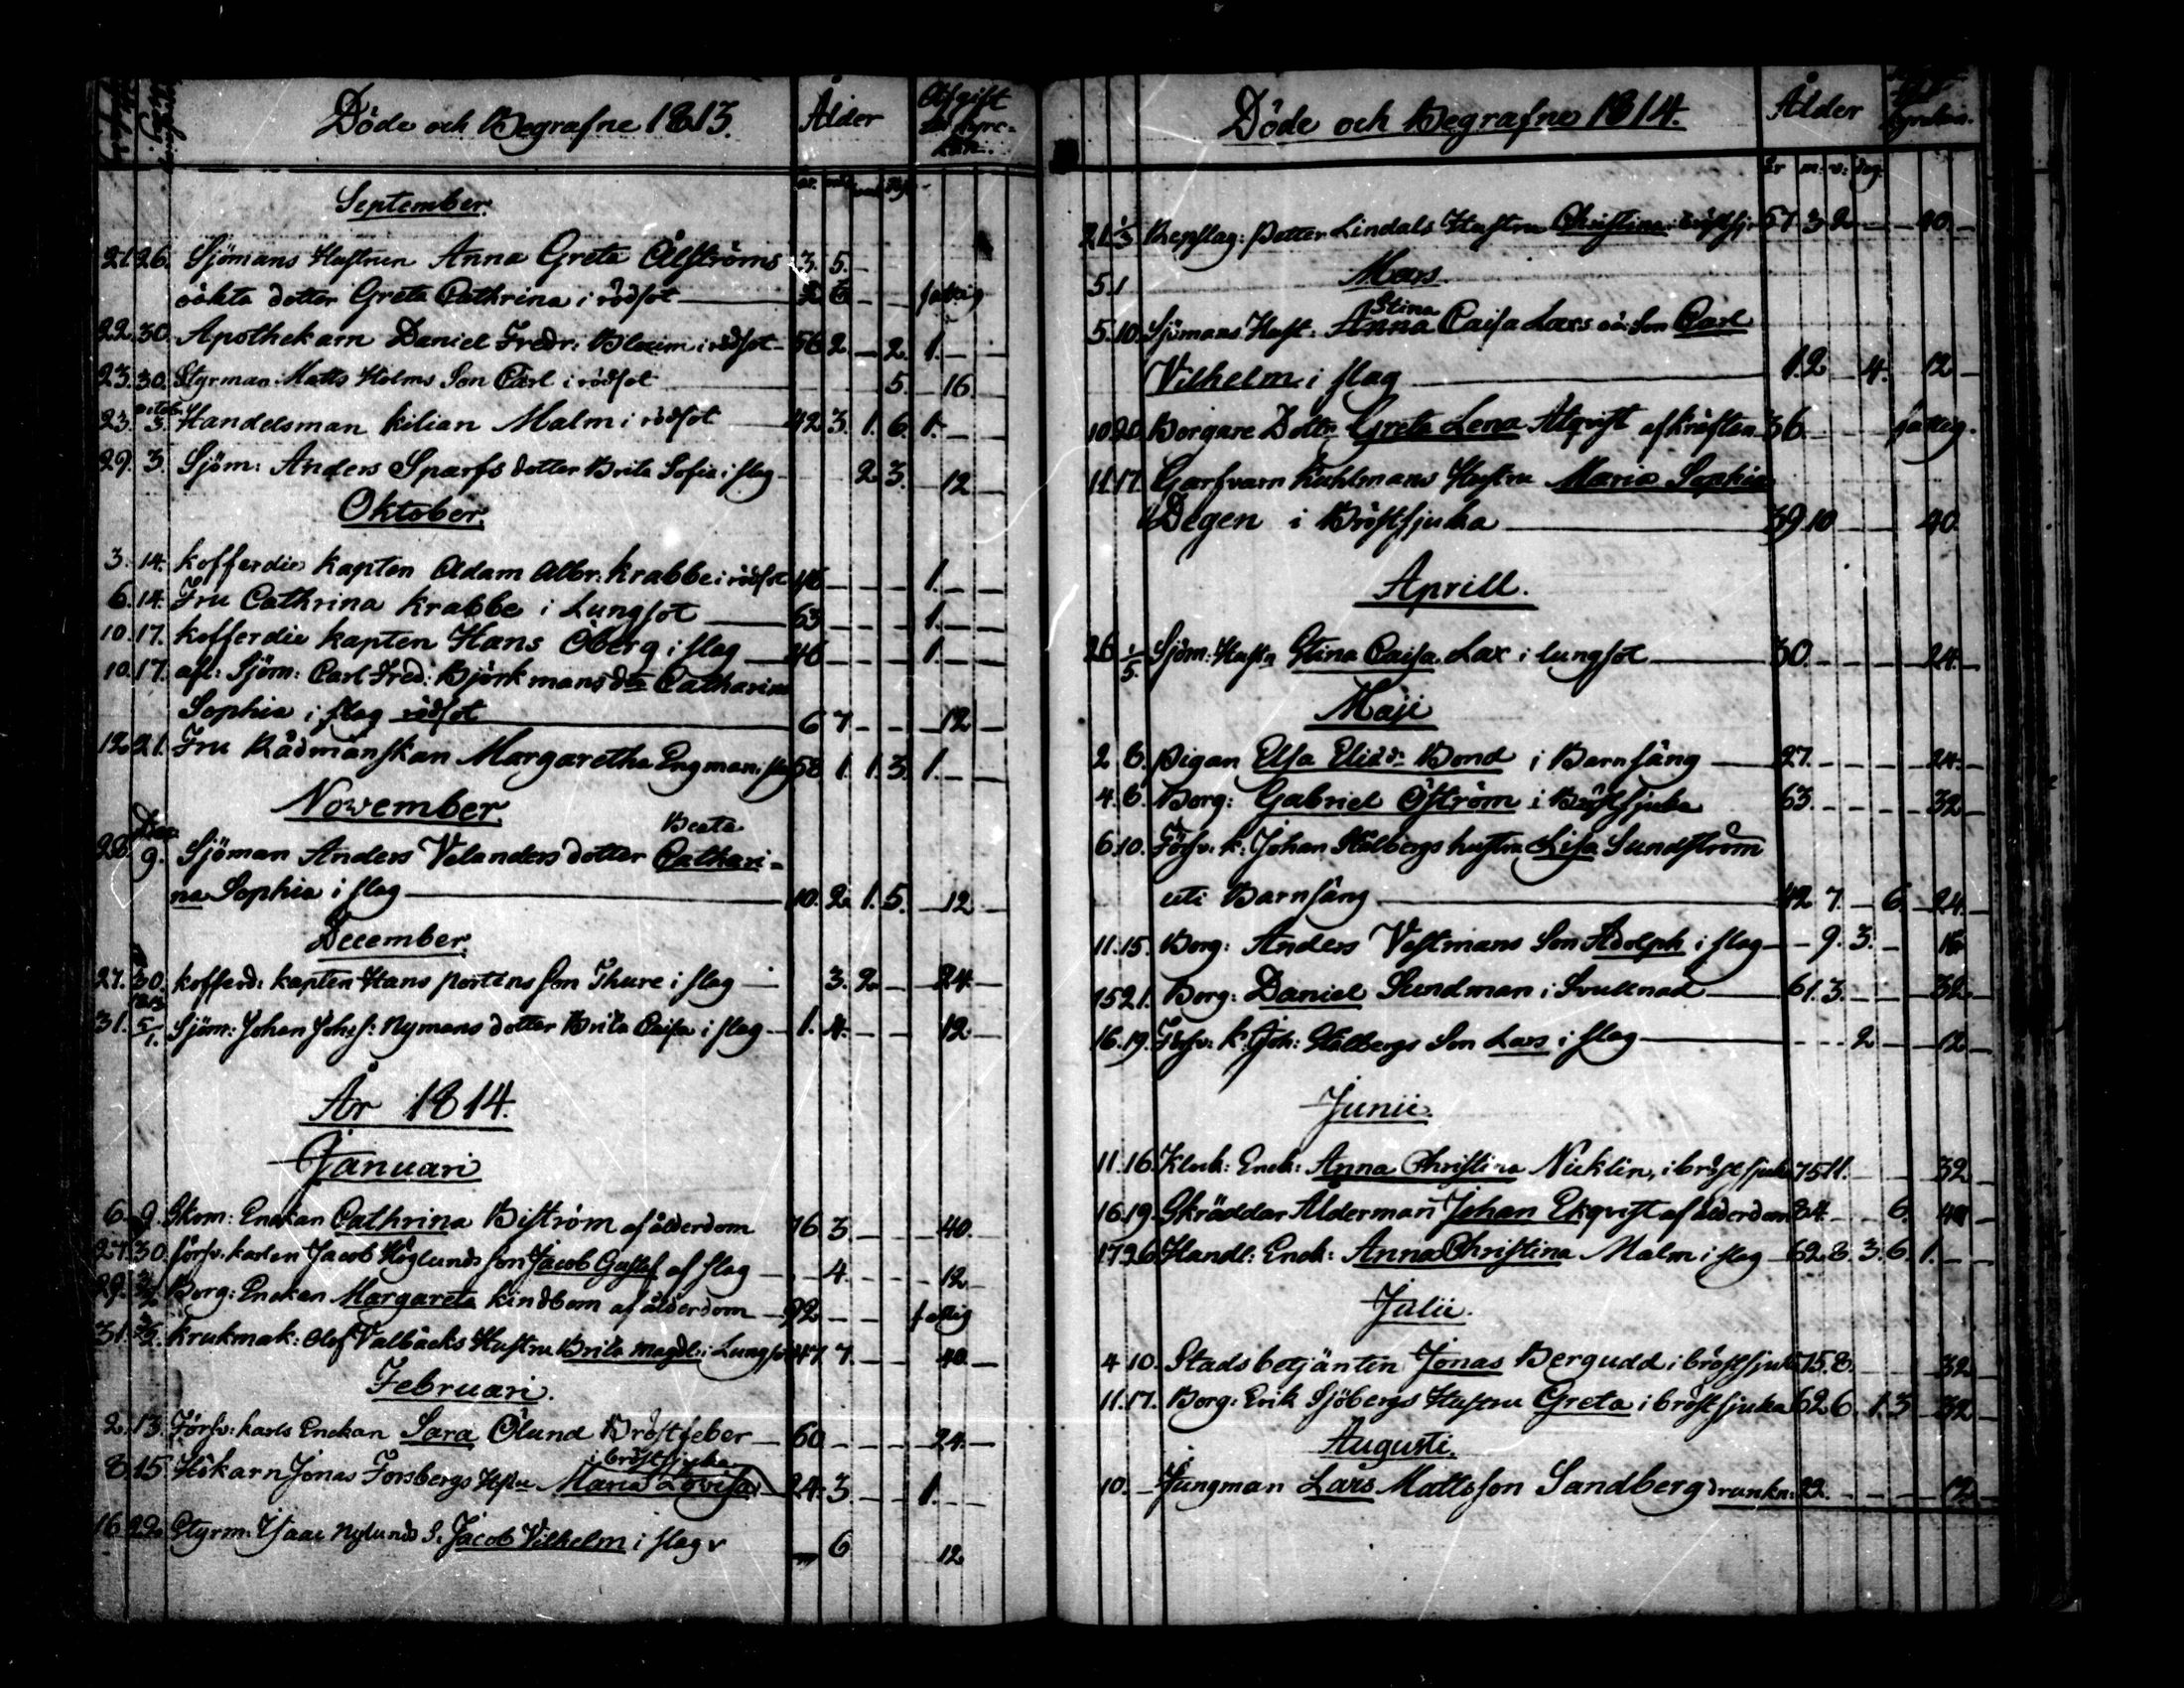 Döde och Begrafne 1813. Ålder Afgift
September.
21. 26. Sjömans Hustrun Anna Greta Ålströms 3. 5. —
oäkta dotter Greta Cathrina i rödsot — fattig
22. 30. Apothekarn Daniel Fredr: Bloum i rödsot — 56 2 — 2. 1. — —
23. 30. Styrman Matts Holms Son Carl i rödsot — 5. 16. —
23. octob. 3. Handelsman Kilian Malm i rödsot — 42 3. 1. 6. 1. — —
29. 3. Sjöm: Anders Sparfs dotter Brita Sofia i slag — 2 3. 12 —
Oktober.
3. 14. Kofferdie Kapten Adam Albr: Krabbe i rödsot 46 — — — 1. — —
6. 14. Fru Cathrina Krabbe i Lungsot — 63 — — — 1. — —
10. 17. Kofferdie Kapten Hans Öberg i slag — 40 — — — 1. — —
10. 17. afl: Sjöm: Carl Fred: Björkmans dtr Catharina
Sophia i slag rödsot — 6 7 — — 12 —
12. 21. Fru Rådmanskan Margaretha Engman i slag 58 1. 1. 3. 1. — —
November.
Beata
28. Dec. 9. Sjöman Anders Velanders dotter Cathari=
na Sophia i slag — 10. 2. 1. 5. 12 —
December.
27. 30. Kofferd: Kapten Hans Portens Son Thure i slag — 3. 2 — 24. —
31. 5/1. Sjöm: Johan Johs: Nymans dotter Brita Caisa i slag — 1. 4. — — 12 —
År 1814.
Januari
6. 9. Skom: Enckan Cathrina Biström af ålderdom 76 3 — — 40. —
27. 30. Försv: karlen Jacob Höglunds son Jacob Gustaf af slag — 4. — — 12 —
29. Borg: Enckan Margareta Kindbom af ålderdom — 92 — — — fattig
31. Krukmak: Olof Valbäcks Hustru Brita Magdl: i Lungsot 47 7. — — 40 —
Februari.
2. 13. Försv: karls Enckan Sara Ölund Bröstfeber — 60 — — — 24. —
i bröstsjuka
8. 15. Hökarn Jonas Forsbergs Hustru Maria Lovisa — 24. 3. — — 1. — —
16. 22. Styrm: Isaac Nylunds S. Jacob Vilhelm i slag — 6 12
Döde och Begrafne 1814. Ålder
år m: v: dag.
21. 1/3 Repslag: Petter Lindals Hustru Christina i bröstsj: 57 3 2 — — 40. —
5. 1 Mars
Stina
5. 10. Sjömans Hust: Anna Caisa Lars oä: Son Carl
Vilhelm i slag — 1. 2 — 4. 12 —
10. 20. Borgare Dottr: Greta Lena Alqvist af kräftan 36 — — — fattig.
11. 17. Garfvarn Kuhlmans Hustru Maria Sophia
Degen i Bröstsjuka — 39. 10 — — 40.
Aprill.
26 1/5. Sjöm: Hustr Stina Caisa Lax i lungsot — 30. — — — 24. —
Maji
2 8. Pigan Elsa Elisdr Bond i Barnsäng — 27. — — — 24. —
4. 8. Borg: Gabriel Öström i Bröstsjuka 63. — — — 32 —
6. 10. Försv: k: Johan Stålbergs hustru Lisa Sundström
uti Barnsäng — 42 7. — 6. 24. —
11. 15. Borg: Anders Vestmans Son Adolph i slag — 9. 3. — 16
15 21. Borg: Daniel Sundman i Svullnad — 61. 3. — — 32 —
16. 19. Försv: k: Joh: Stålbergs Son Lars i slag — — — 2 — 12 —
Junii
11. 16. Klock: Enck: Anna Christina Nicklin, i bröstsjuka 75 11. — — 32
16. 19. Skräddar Ålderman Johan Ekqvist af ålderdom 84. — — 6. 40 —
17 26. Handl: Enck: Anna Christina Malm i slag — 62. 8. 3. 6. 1. — —
Julii.
4 10. Stadsbetjänten Jonas Bergudd i bröstsjuk 75. 8. — — 32
11. 17. Borg: Erik Sjöbergs Hustru Greta i bröstsjuka 62 6. 1. 3 32 —
Augusti.
10. — Jungman Lars Mattsson Sandberg drunkn: 22. — — — 12 —